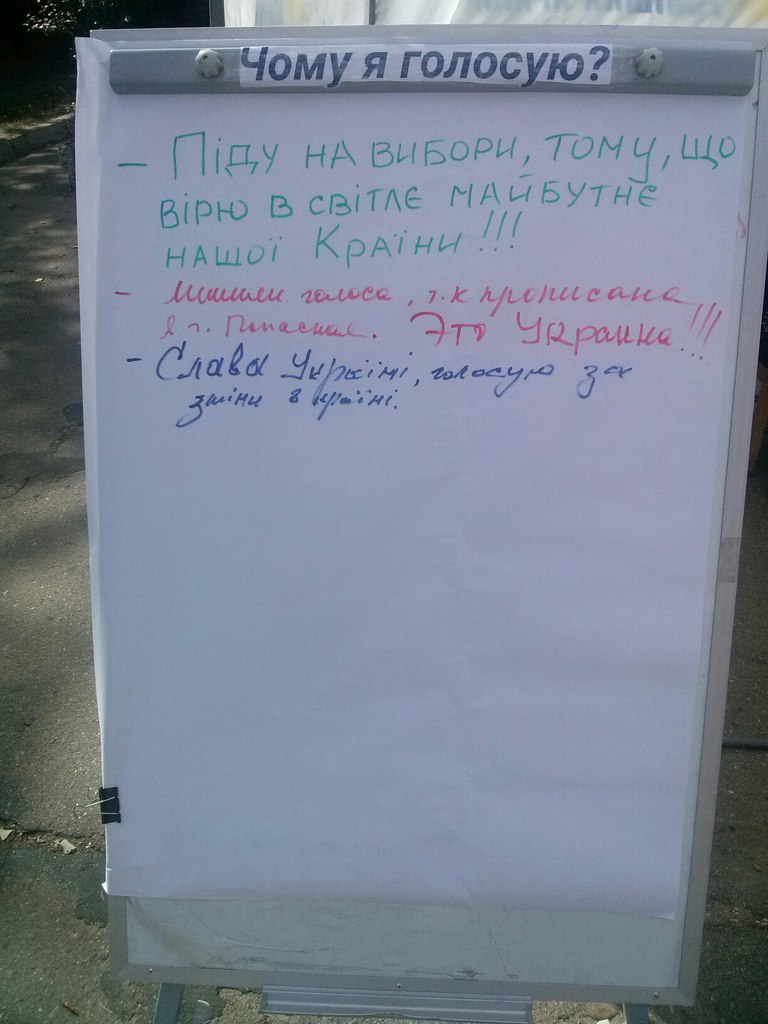 Чому я голосую?
– Піду на вибори, тому, що
вірю в світлє майбутнє
нашої Країни!!!
– Лишили голоса, т.к прописана
в г. Попасная. Это Украина!!!
– Слава Україні, голосую за
зміни в країні.